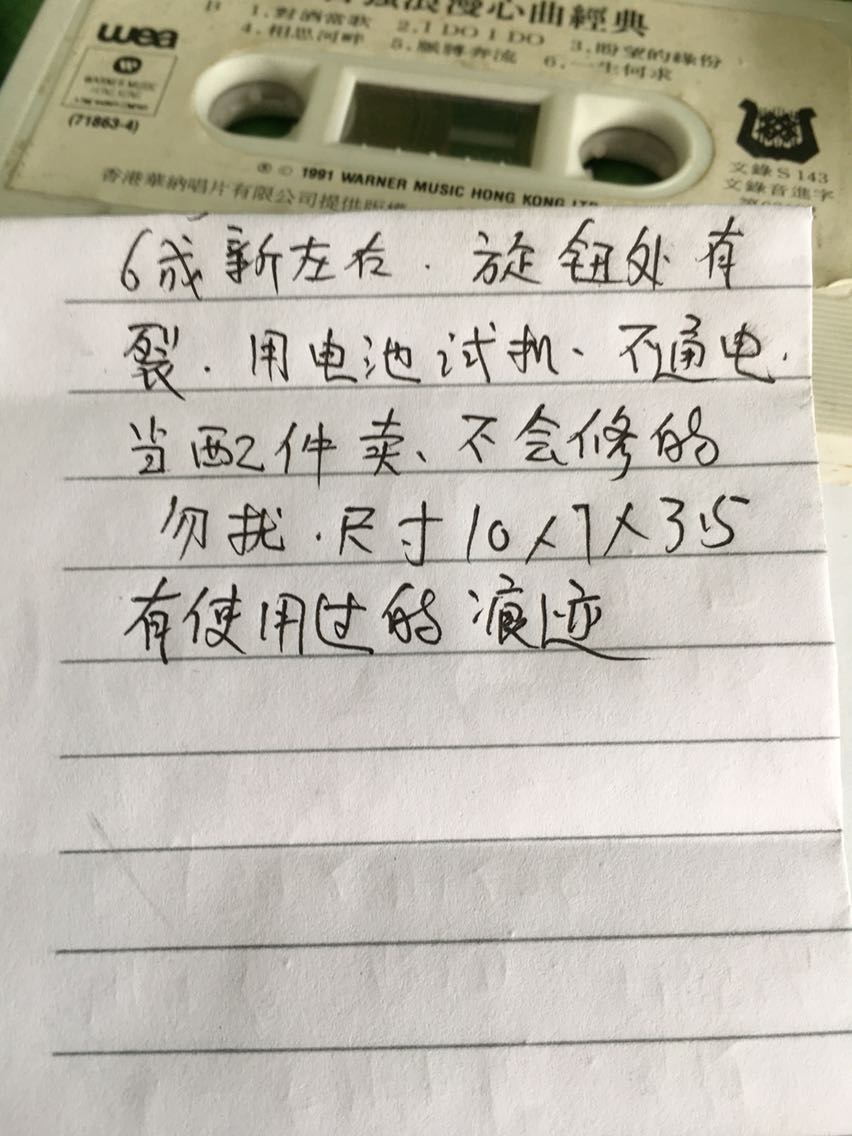 浪漫心曲經典
B 1.對酒當歌 2.I DO I DO 3.盼望的緣份
4.相思河畔 5.脈膊奔流 6.一生何求
wea
WARNER MUSIC
HONG KONG
(71863-4)
℗ © 1991 WARNER MUSIC HONG KONG LTD
香港華納唱片有限公司提供版權
文錄S143
文錄音進字
6成新左右.旋钮处有
裂.用电池试机、不通电.
当配件卖、不会修的
勿扰.尺寸10×7×3.5
有使用过的痕迹